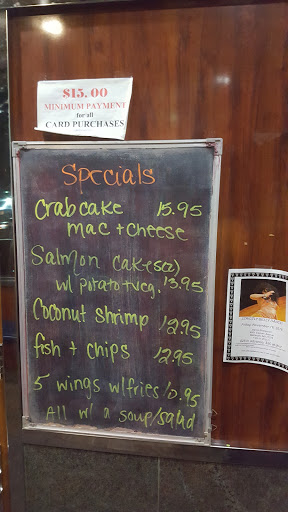 $15.00
MINIMUM PAYMENT
for all
CARD PURCHASES
Specials
Crabcake 15.95
mac + cheese
Salmon cakes(2)
w/ potato + veg. 13.95
Coconut shrimp 12.95
fish + chips 12.95
5 wings w/fries 10.95
All w/ a soup/salad